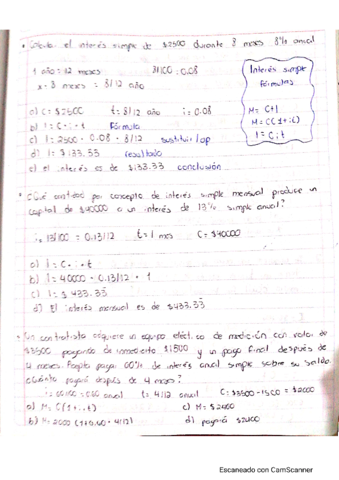 • Calcula el interés simple de $2500 durante 8 meses 8% anual
1 año = 12 meses 8/100 = 0.08
x = 8 meses = 8/12 año
Interés simple
fórmulas
M = C+I
M = C(1+i·t)
I = C·i·t
a) C = $2500 t = 8/12 año i = 0.08
b) I = C·i·t Fórmula
c) I = 2500 · 0.08 · 8/12 sustituir/op
d) I = $133.33 resultado
e) el interés es de $133.33 conclusión
• ¿Qué cantidad por concepto de interés simple mensual produce un
capital de $40000 a un interés de 13% simple anual?
i = 13/100 = 0.13/12 t = 1 mes C = $40000
a) I = C·i·t
b) I = 40000 · 0.13/12 · 1
c) I = $433.33
d) El interés mensual es de $433.33
Un contratista adquiere un equipo eléctrico de medición con valor de
$3500 pagando de inmediato $1500 y un pago final después de
4 meses. Acepta pagar 60% de interés anual simple sobre su saldo.
¿Cuánto pagará después de 4 meses?
i = 60/100 = 0.60 anual t = 4/12 anual C = $3500 - 1500 = $2000
a) M = C(1+i·t) c) M = $2400
b) M = 2000 (1+0.60 · 4/12) d) pagará $2400
Escaneado con CamScanner